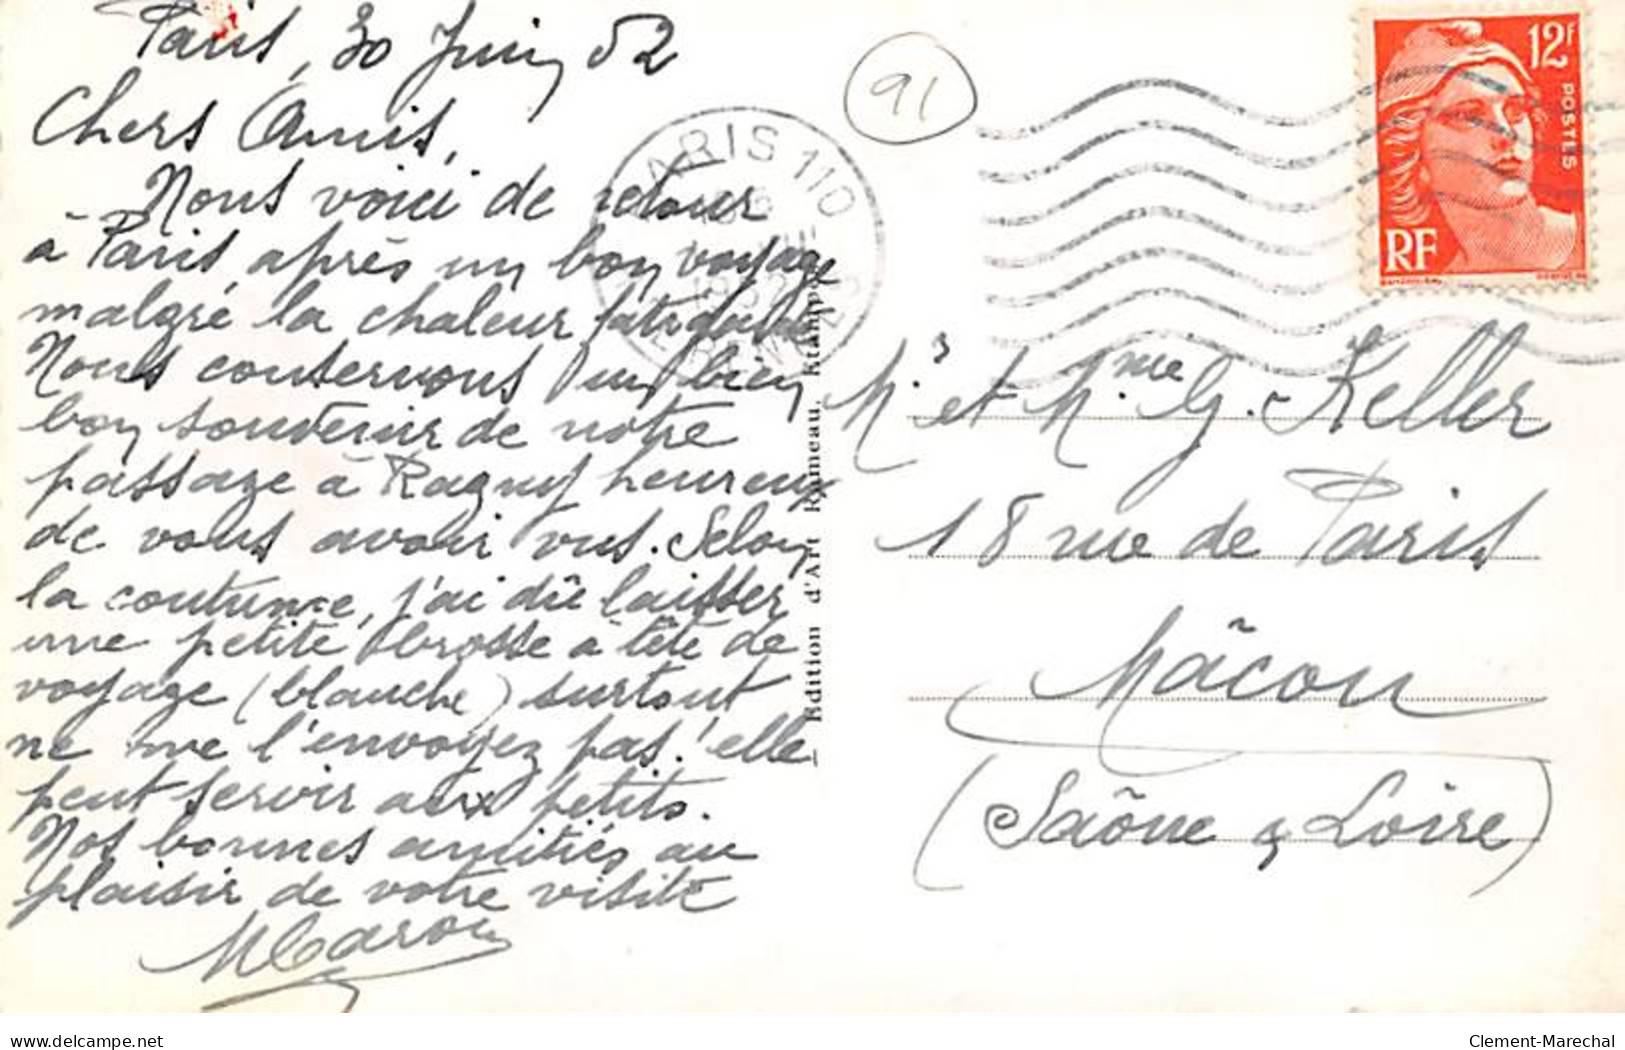 Paris, 30 Juin 52
Chers Amis,
Nous voici de retour
à Paris après un bon voyage
malgré la chaleur fatigante
Nous conservons un bien
bon souvenir de notre
passage à Ragny heureux
de vous avoir vus. Selon
la coutume, j'ai dû laisser
une petite brosse à tête de
voyage (blanche) surtout
ne me l'envoyez pas! elle
peut servir aux petits.
Nos bonnes amitiés au
plaisir de votre visite
MCaron
Edition d'Art Rameau, Etampes
91
PARIS 110
1952
12F
POSTES
RF
Mr et Mme G. Keller
18 rue de Paris
Mâcon
(Saône & Loire)
delcampe.net
Clement-Marechal